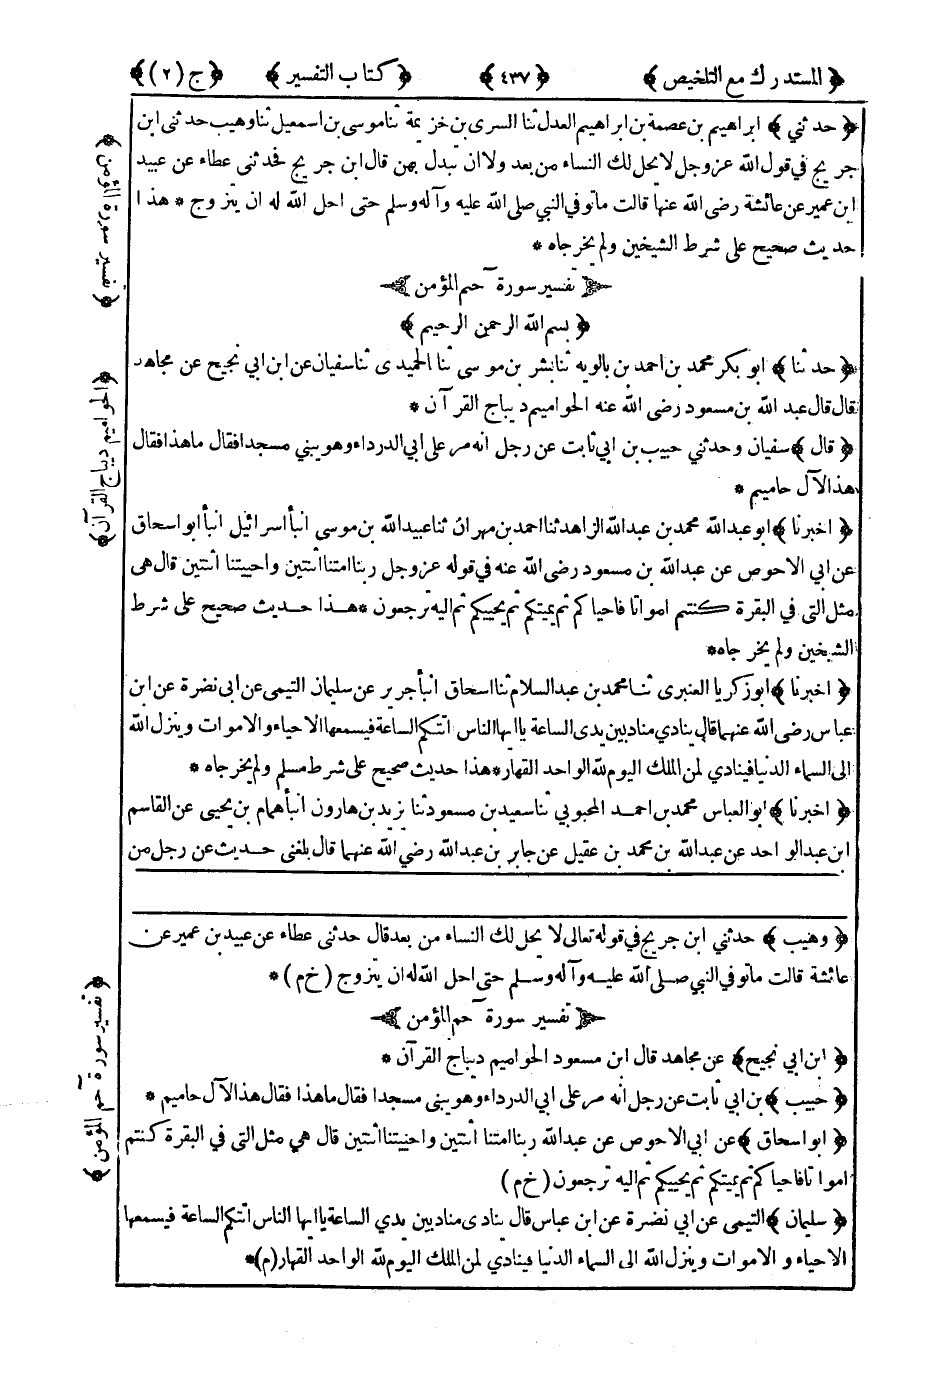 ﴿ المستدرك مع التلخيص ﴾ ﴿ ٤٣٧ ﴾ ﴿ كتاب التفسير ﴾ ﴿ ج (٢) ﴾
﴿ حدثني ﴾ ابراهيم بن عصمة بن ابراهيم العدل ثنا السرى بن خزيمة ثنا موسى بن اسمعيل ثنا وهيب حدثنى ابن
جريج في قول الله عزوجل لا يحل لك النساء من بعد ولا ان تبدل بهن قال ابن جريج فحدثنى عطاء عن عبيد
ابن عمير عن عائشة رضى الله عنها قالت ما توفي النبي صلى الله عليه وآله وسلم حتى احل الله له ان يتزوج * هذا
حديث صحيح على شرط الشيخين ولم يخرجاه *
تفسير سورة حم المؤمن
﴿ بسم الله الرحمن الرحيم ﴾
﴿ حدثنا ﴾ ابو بكر محمد بن احمد بن بالويه ثنا بشر بن موسى ثنا الحميدى ثنا سفيان عن ابن ابي نجيح عن مجاهد
قال قال عبد الله بن مسعود رضى الله عنه الحواميم ديباج القرآن *
﴿ قال ﴾ سفيان وحدثني حبيب بن ابي ثابت عن رجل انه مر على ابي الدرداء وهو يبني مسجدا فقال ما هذا فقال
هذا لآل حاميم *
﴿ اخبرنا ﴾ ابو عبدالله محمد بن عبدالله الزاهد ثنا احمد بن مهران ثنا عبيدالله بن موسى انبأ اسرائيل انبأ ابو اسحاق
عن ابي الاحوص عن عبدالله بن مسعود رضى الله عنه في قوله عزوجل ربنا امتنا اثنتين واحييتنا اثنتين قال هى
مثل التى في البقرة كنتم امواتا فاحياكم ثم يميتكم ثم يحييكم ثم اليه ترجعون * هذا حديث صحيح على شرط
الشيخين ولم يخرجاه *
﴿ اخبرنا ﴾ ابو زكريا العنبرى ثنا محمد بن عبدالسلام ثنا اسحاق انبأ جرير عن سليمان التيمى عن ابى نضرة عن ابن
عباس رضى الله عنهما قال ينادي مناد بين يدى الساعة يا ايها الناس اتتكم الساعة فيسمعها الاحياء والاموات وينزل الله
الى السماء الدنيا فينادي لمن الملك اليوم لله الواحد القهار * هذا حديث صحيح على شرط مسلم ولم يخرجاه *
﴿ اخبرنا ﴾ ابو العباس محمد بن احمد المحبوبي ثنا سعيد بن مسعود ثنا يزيد بن هارون انبأ همام بن يحيى عن القاسم
ابن عبدالواحد عن عبدالله بن محمد بن عقيل عن جابر بن عبدالله رضي الله عنهما قال بلغنى حديث عن رجل من
﴿ وهيب ﴾ حدثني ابن جريج في قوله تعالى لا يحل لك النساء من بعد قال حدثنى عطاء عن عبيد بن عمير عن
عائشة قالت ما توفي النبي صلى الله عليه وآله وسلم حتى احل الله له ان يتزوج (خ م) *
تفسير سورة حم المؤمن
﴿ ابن ابي نجيح ﴾ عن مجاهد قال ابن مسعود الحواميم ديباج القرآن *
﴿ حبيب ﴾ بن ابي ثابت عن رجل انه مر على ابي الدرداء وهو يبنى مسجدا فقال ما هذا فقال هذا لآل حاميم *
﴿ ابو اسحاق ﴾ عن ابي الاحوص عن عبدالله ربنا امتنا اثنتين واحييتنا اثنتين قال هي مثل التى في البقرة كنتم
امواتا فاحياكم ثم يميتكم ثم يحييكم ثم اليه ترجعون (خ م)
﴿ سليمان ﴾ التيمى عن ابي نضرة عن ابن عباس قال ينادى مناد بين يدي الساعة يا ايها الناس اتتكم الساعة فيسمعها
الاحياء والاموات وينزل الله الى السماء الدنيا فينادي لمن الملك اليوم لله الواحد القهار (م) *
﴿ تفسير سورة المؤمن ﴾
﴿ الحواميم ديباج القرآن ﴾
﴿ تفسير سورة حم المؤمن ﴾